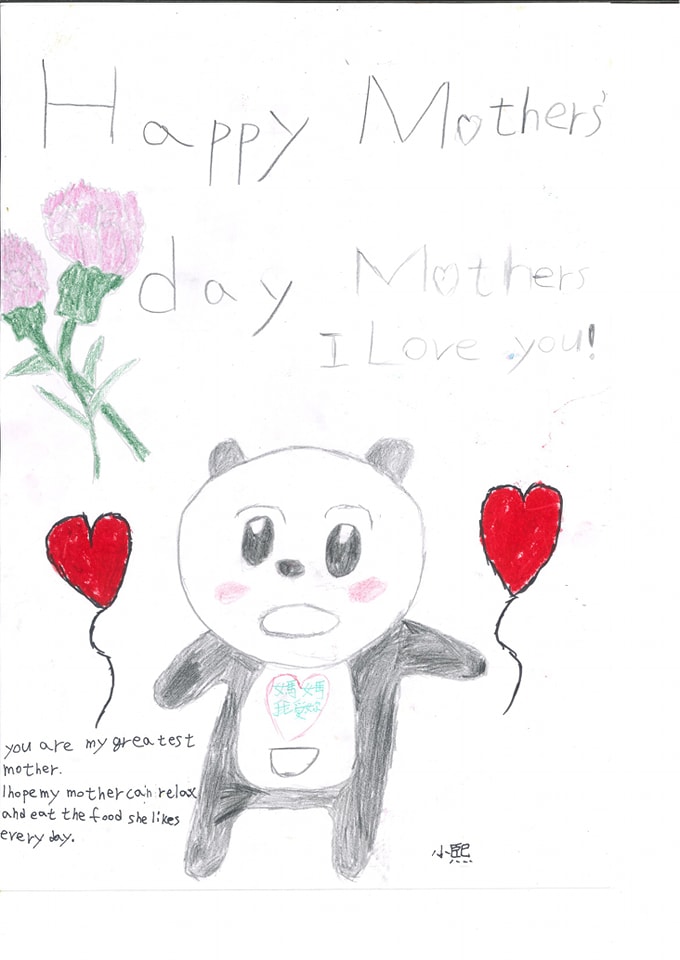 Happy Mothers'
day Mothers
I Love you!
媽媽
我愛妳
you are my greatest
mother.
I hope my mother can relax
and eat the food she likes
every day.
小熙